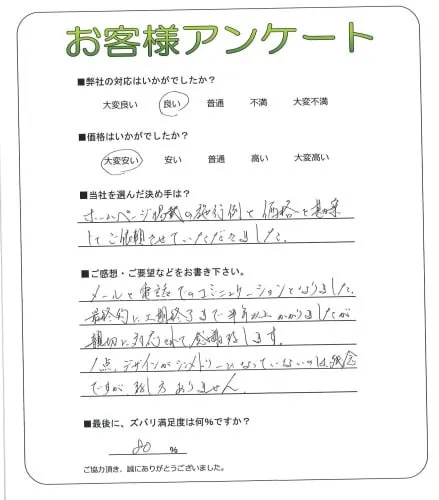 お客様アンケート
■弊社の対応はいかがでしたか?
大変良い 良い 普通 不満 大変不満
■価格はいかがでしたか?
大変安い 安い 普通 高い 大変高い
■当社を選んだ決め手は?
ホームページ掲載の施行例と価格を勘案
してご依頼させていただきました。
■ご感想・ご要望などをお書き下さい。
メールと電話でのコミュニケーションとなりました。
最終的に工期終了まで半年以上かかりましたが
親切に対応されて感謝致します。
1点、デザインがシンメトリーになっていないのは残念
ですが致し方ありません。
■最後に、ズバリ満足度は何%ですか?
80 %
ご協力頂き、誠にありがとうございました。